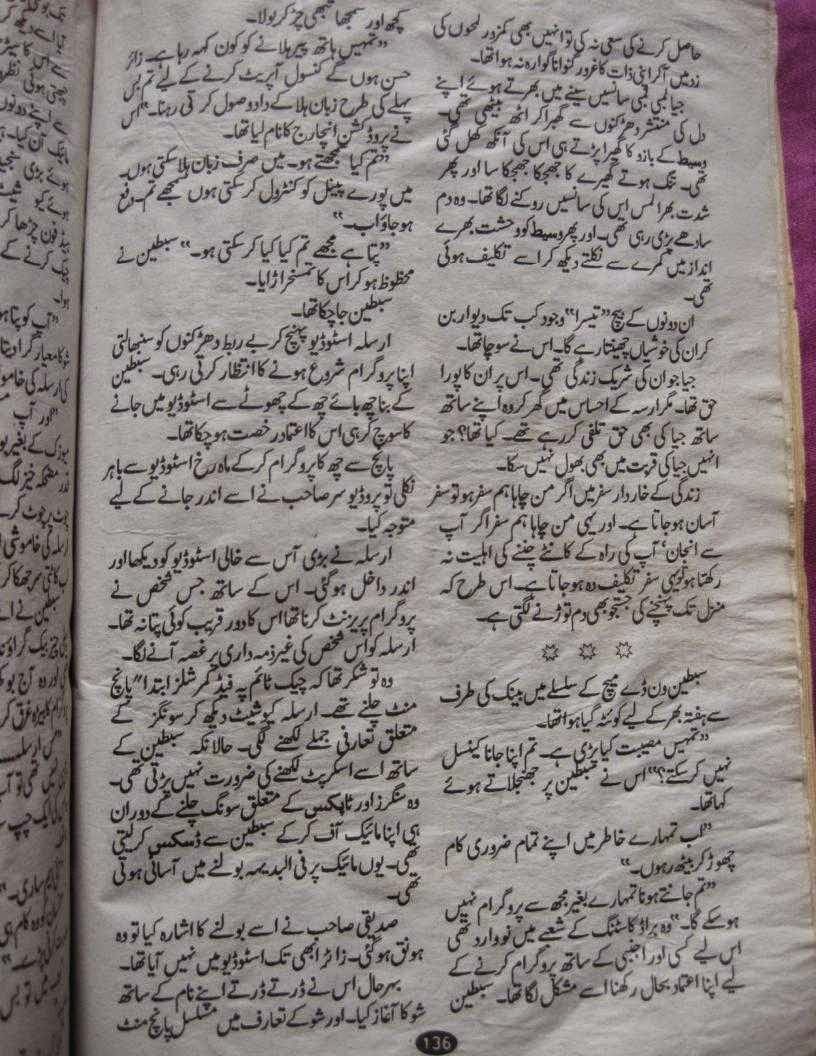 حاصل کرنے کی سعی نہ کی تو انہیں بھی کمزور لمحوں کی
زد میں آکر اپنی ذات کا غرور گنوانا گوارہ نہ ہوا تھا۔
جیا لمبی لمبی سانسیں سینے میں بھرتے ہوئے اپنے
دل کی منتشر دھڑکنوں سے گھبرا کر اٹھ بیٹھی تھی۔
وسیط کے بازو کا گھیرا پڑتے ہی اس کی آنکھ کھل گئی
تھی۔ تنگ ہوتے گھیرے کا بھیگا بھیگا سا اور پھر
شدت بھرا لمس اس کی سانسیں روکنے لگا تھا۔ وہ دم
سادھے پڑی رہی تھی۔ اور پھر وسیط کو وحشت بھرے
انداز میں کمرے سے نکلتے دیکھ کر اسے تکلیف ہوئی
تھی۔
ان دونوں کے بیچ ”تیسرا“ وجود کب تک دیوار بن
کر ان کی خوشیاں چھینتا رہے گا۔ اس نے سوچا تھا۔
جیا جو ان کی شریک زندگی تھی۔ اس پر ان کا پورا
حق تھا۔ مگر ارسہ کے احساس میں گھر کر وہ اپنے ساتھ
ساتھ جیا کی بھی حق تلفی کر رہے تھے۔ کیا تھا؟ جو
انہیں جیا کی قربت میں بھی بھول نہیں سکا۔
زندگی کے خاردار سفر میں اگر من چاہا ہم سفر ہو تو سفر
آسان ہو جاتا ہے۔ اور یہی من چاہا ہم سفر اگر آپ
سے انجان‘ آپ کی راہ کے کانٹے چننے کی اہلیت نہ
رکھتا ہو تو یہی سفر تکلیف دہ ہو جاتا ہے۔ اس طرح کہ
منزل تک پہنچنے کی جستجو بھی دم توڑنے لگتی ہے۔
☼ ☼ ☼
سبطین ون ڈے میچ کے سلسلے میں بینک کی طرف
سے ہفتہ بھر کے لیے کوئٹہ گیا ہوا تھا۔
”تمہیں مصیبت کیا پڑی ہے۔ تم اپنا جانا کینسل
نہیں کر سکتے؟“ اس نے سبطین پر جھنجلاتے ہوئے
کہا تھا۔
”اب تمہارے خاطر میں اپنے تمام ضروری کام
چھوڑ کر بیٹھ رہوں۔“
”تم جانتے ہو نا تمہارے بغیر مجھ سے پروگرام نہیں
ہو سکے گا۔“ وہ براڈ کاسٹنگ کے شعبے میں نووارد تھی
اس لیے کسی اور اجنبی کے ساتھ پروگرام کرنے کے
لیے اپنا اعتماد بحال رکھنا اسے مشکل لگا تھا۔ سبطین
کچھ اور سمجھا تبھی چڑ کر بولا۔
”تمہیں ہاتھ پیر ہلانے کو کون کہہ رہا ہے۔ زائر
حسن ہوں گے کنسول آپریٹ کرنے کے لیے تم بس
پہلے کی طرح زبان ہلا کے داد وصول کرتی رہنا۔“ اس
نے پروڈکشن انچارج کا نام لیا تھا۔
”تم کیا سمجھتے ہو۔ میں صرف زبان ہلا سکتی ہوں۔
میں پورے پینل کو کنٹرول کر سکتی ہوں سمجھے تم۔ دفع
ہو جاؤ اب۔“
”پتا ہے مجھے تم کیا کیا کر سکتی ہو۔“ سبطین نے
محظوظ ہو کر اس کا تمسخر اڑایا۔
سبطین جا چکا تھا۔
ارسلہ اسٹوڈیو پہنچ کر بے ربط دھڑکنوں کو سنبھالتی
اپنا پروگرام شروع ہونے کا انتظار کرتی رہی۔ سبطین
کے بنا چھ بائے چھ کے چھوٹے سے اسٹوڈیو میں جانے
کا سوچ کر ہی اس کا اعتماد رخصت ہو چکا تھا۔
پانچ سے چھ کا پروگرام کر کے ماہ رخ اسٹوڈیو سے باہر
نکلی تو پروڈیوسر صاحب نے اسے اندر جانے کے لیے
متوجہ کیا۔
ارسلہ نے بڑی آس سے خالی اسٹوڈیو کو دیکھا اور
اندر داخل ہو گئی۔ اس کے ساتھ جس شخص نے
پروگرام پریزنٹ کرنا تھا اس کا دور قریب کوئی پتا نہ تھا۔
ارسلہ کو اس شخص کی غیر ذمہ داری پر غصہ آنے لگا۔
وہ تو شکر تھا کہ چیک ٹائم پہ فیڈ کمرشلز ابتدا ”پانچ
منٹ چلنے تھے۔ ارسلہ کیو شیٹ دیکھ کر سونگز کے
متعلق تعارفی جملے لکھنے لگی۔ حالانکہ سبطین کے
ساتھ اسے اسکرپٹ لکھنے کی ضرورت نہیں پڑتی تھی۔
وہ سنگرز اور ٹاپکس کے متعلق سونگ چلنے کے دوران
ہی اپنا مائیک آف کر کے سبطین سے ڈسکس کر لیتی
تھی۔ یوں مائیک پر فی البدیہہ بولنے میں آسانی ہوتی
تھی۔
صدیقی صاحب نے اسے بولنے کا اشارہ کیا تو وہ
ہونق ہو گئی۔ زائر ابھی تک اسٹوڈیو میں نہیں آیا تھا۔
بہرحال اس نے ڈرتے ڈرتے اپنے نام کے ساتھ
شو کا آغاز کیا۔ اور شو کے تعارف میں مسلسل پانچ منٹ
136